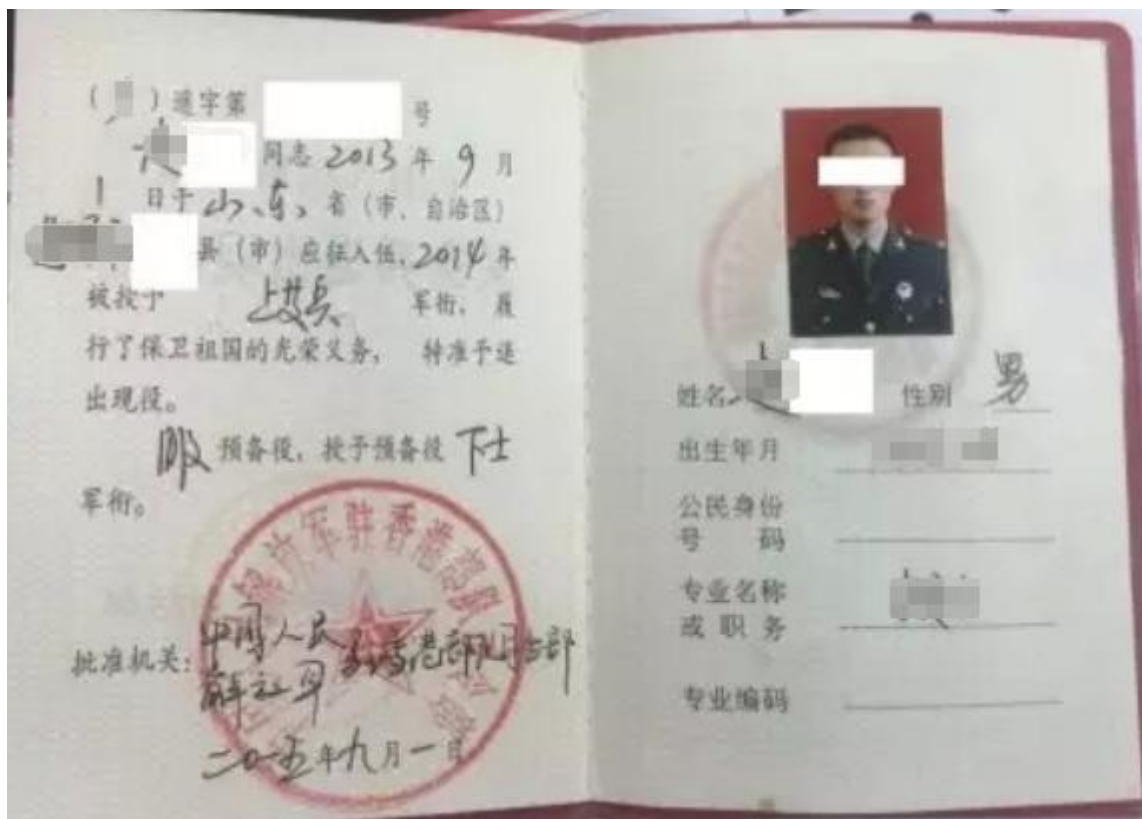 （ ）退字第 号
同志 2013 年 9 月
1 日于 山东 省（市、自治区）
县（市）应征入伍，2014 年
被授予 上等兵 军衔，履
行了保卫祖国的光荣义务， 特准予退
出现役。
服 预备役，授予预备役 下士
军衔。
放军驻香港部队
批准机关：中国人民
解放军 驻香港部队司令部
二〇一五年九月一日
姓名 性别 男
出生年月
公民身份
号 码
专业名称
或职务
专业编码